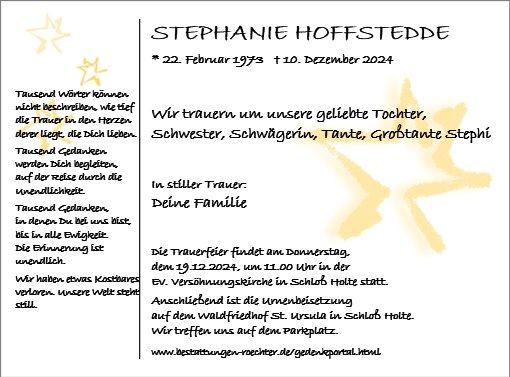 STEPHANIE HOFFSTEDDE
* 22. Februar 1973 † 10. Dezember 2024
Tausend Wörter können
nicht beschreiben, wie tief
die Trauer in den Herzen
derer liegt, die Dich lieben.
Tausend Gedanken
werden Dich begleiten,
auf der Reise durch die
Unendlichkeit.
Tausend Gedanken,
in denen Du bei uns bist,
bis in alle Ewigkeit.
Die Erinnerung ist
unendlich.
Wir haben etwas Kostbares
verloren. Unsere Welt steht
still.
Wir trauern um unsere geliebte Tochter,
Schwester, Schwägerin, Tante, Großtante Stephi
In stiller Trauer:
Deine Familie
Die Trauerfeier findet am Donnerstag,
dem 19.12.2024, um 11.00 Uhr in der
Ev. Versöhnungskirche in Schloß Holte statt.
Anschließend ist die Urnenbeisetzung
auf dem Waldfriedhof St. Ursula in Schloß Holte.
Wir treffen uns auf dem Parkplatz.
www.bestattungen-roechter.de/gedenkportal.html